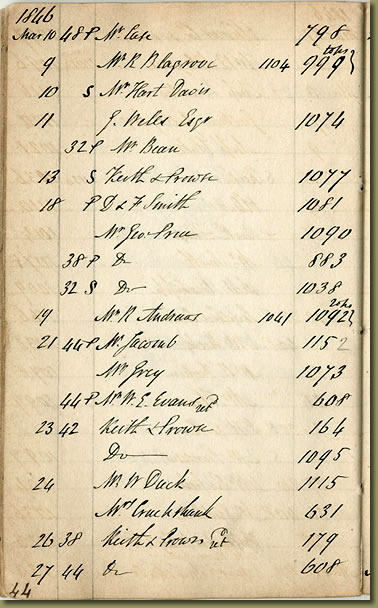 1846
Mar 10 48 P Mr Case 798
9 Mr R Blagrove 1104 999
10 S Mr Hart Davis
11 J. Weles Esqr 1074
32 P Mr Bean
13 S Keith & Prowse 1077
18 P D & F Smith 1081
Mr Geo. Price 1090
38 P Do 883
32 S Do 1038
19 Mr R Andrews 1041 1092
21 44 P Mr Jacomb 1152
Mr Grey 1073
44 P Mr W. E. Evans 608
23 42 Keith & Prowse 164
Do 1095
24 Mr W Duck 1115
Mr Cruckshank 631
26 38 Keith & Prowse 179
27 44 Do 608
44